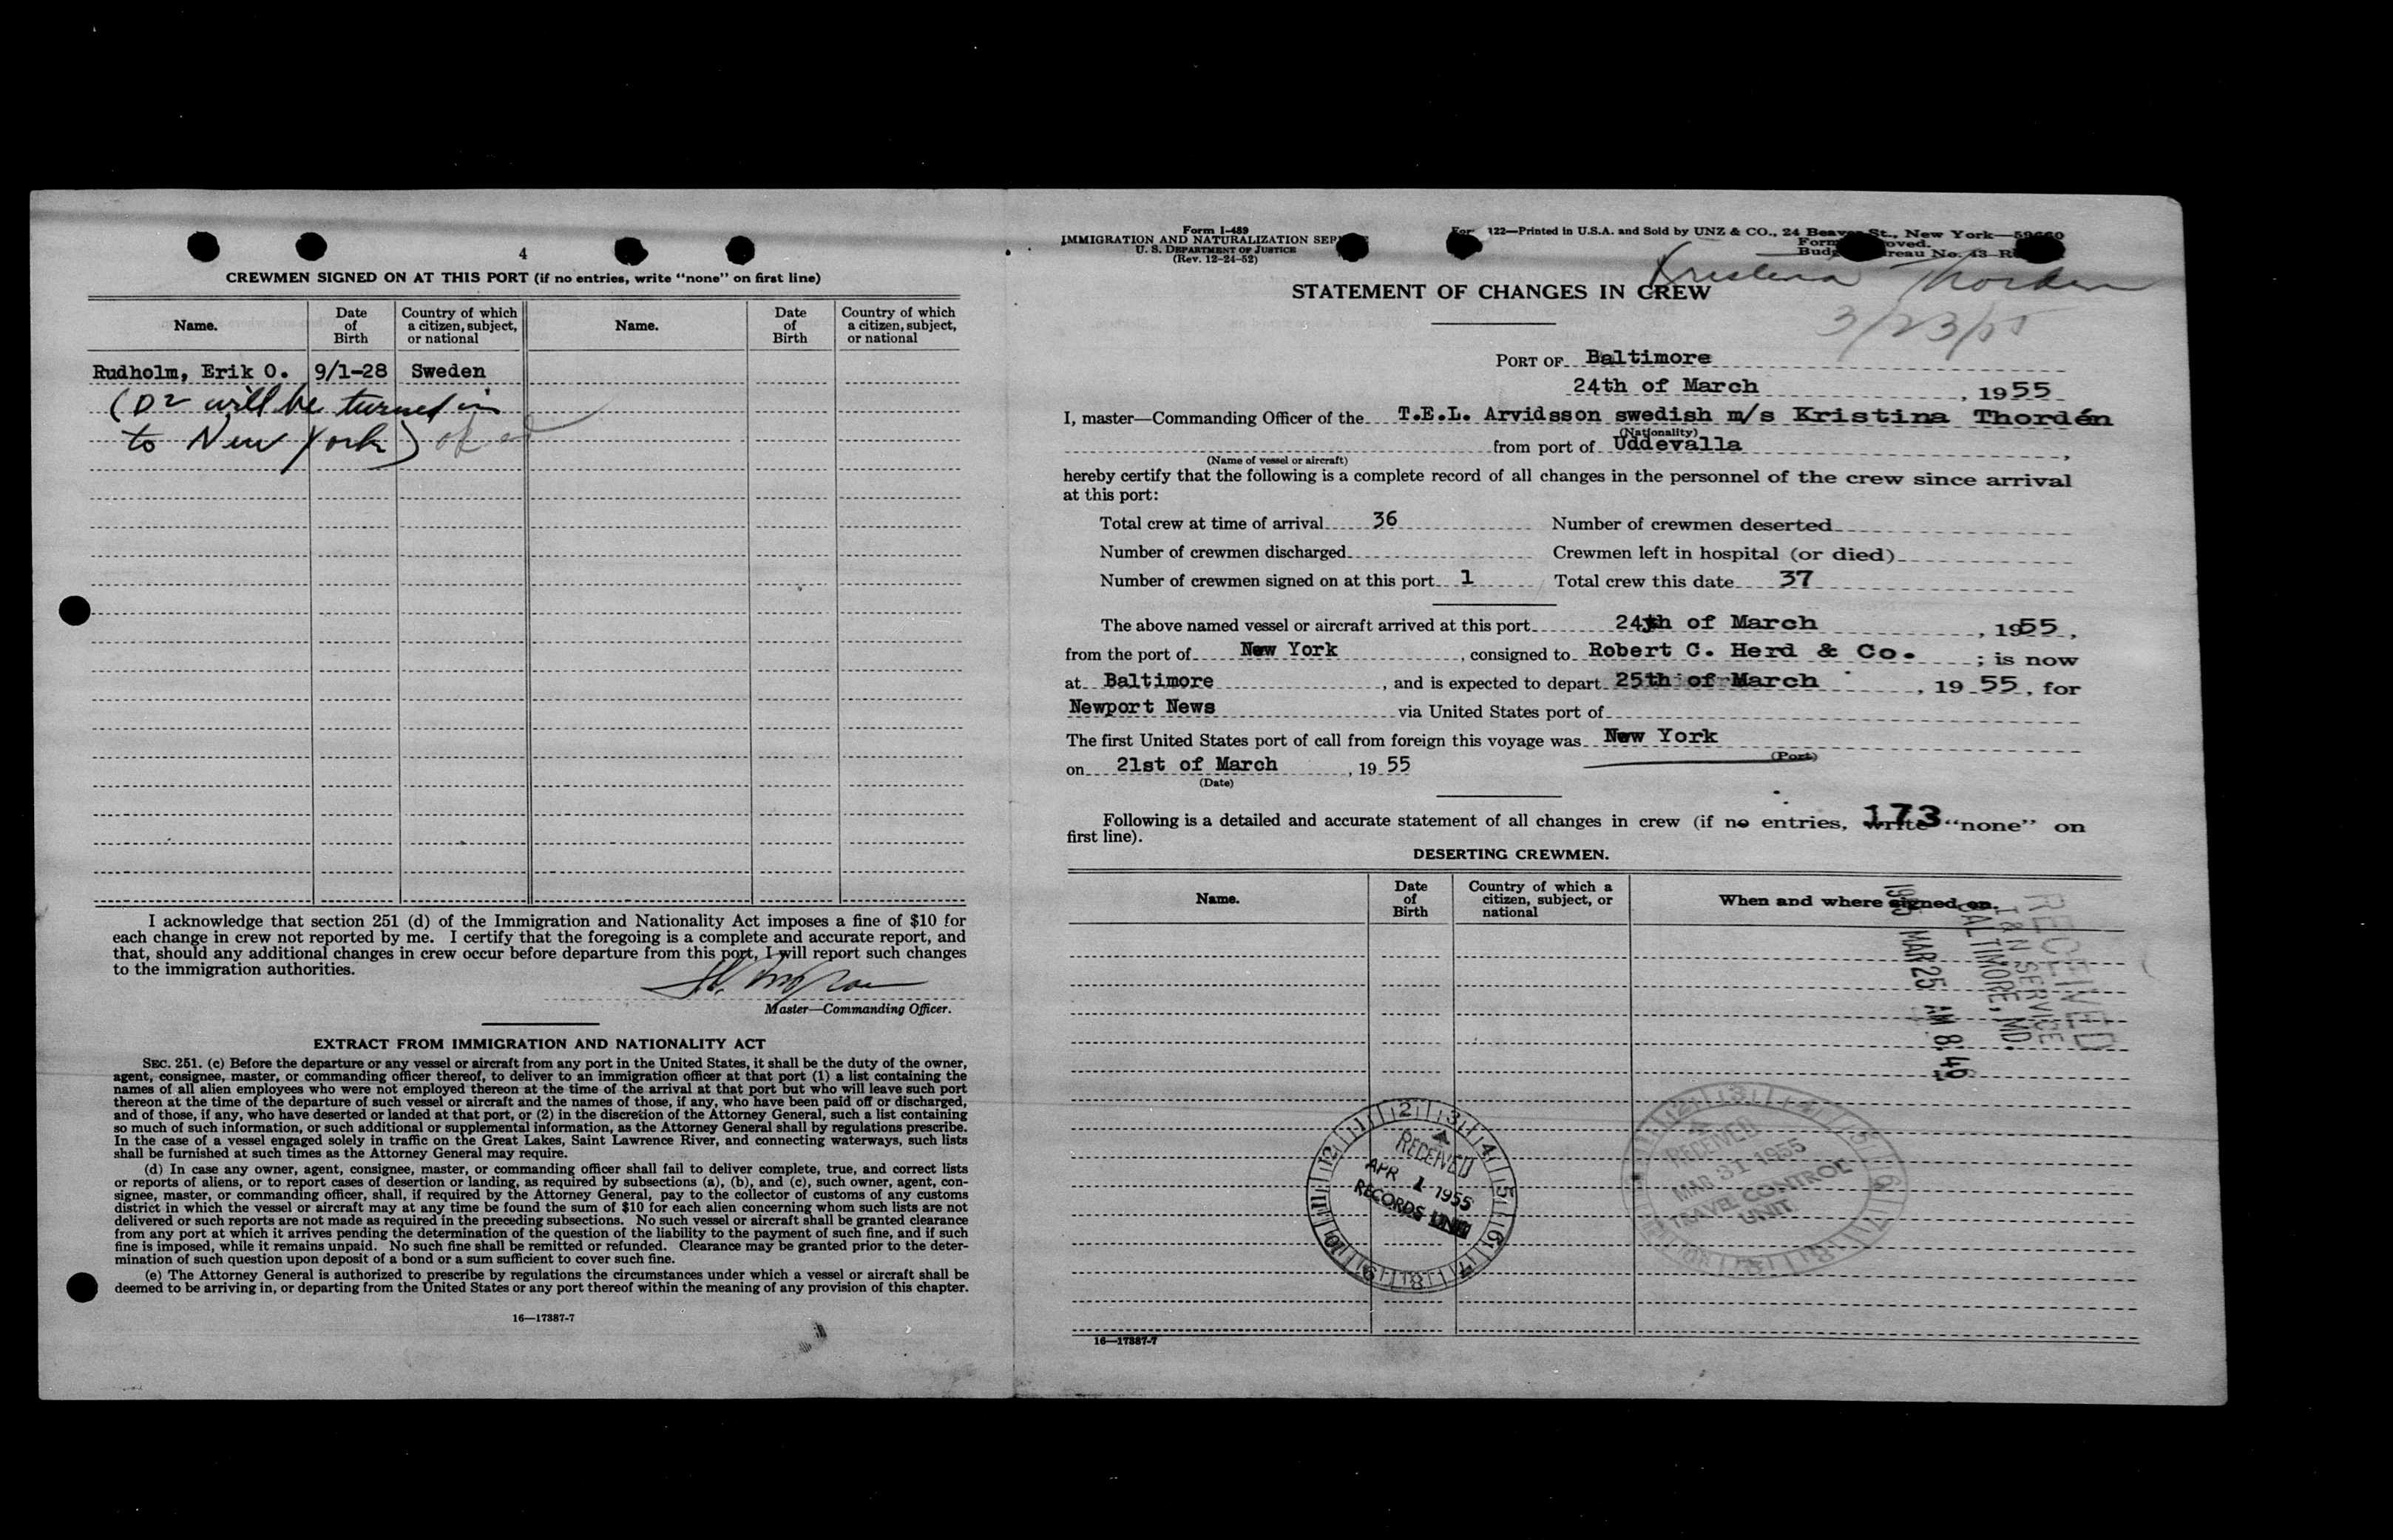 4
CREWMEN SIGNED ON AT THIS PORT (if no entries, write “none” on first line)
Name. Date of Birth Country of which a citizen, subject, or national Name. Date of Birth Country of which a citizen, subject, or national
Rudholm, Erik O. 9/1-28 Sweden
(D2 will be turned in
to New York)
I acknowledge that section 251 (d) of the Immigration and Nationality Act imposes a fine of $10 for
each change in crew not reported by me. I certify that the foregoing is a complete and accurate report, and
that, should any additional changes in crew occur before departure from this port, I will report such changes
to the immigration authorities.
Master—Commanding Officer.
EXTRACT FROM IMMIGRATION AND NATIONALITY ACT
SEC. 251. (c) Before the departure or any vessel or aircraft from any port in the United States, it shall be the duty of the owner,
agent, consignee, master, or commanding officer thereof, to deliver to an immigration officer at that port (1) a list containing the
names of all alien employees who were not employed thereon at the time of the arrival at that port but who will leave such port
thereon at the time of the departure of such vessel or aircraft and the names of those, if any, who have been paid off or discharged,
and of those, if any, who have deserted or landed at that port, or (2) in the discretion of the Attorney General, such a list containing
so much of such information, or such additional or supplemental information, as the Attorney General shall by regulations prescribe.
In the case of a vessel engaged solely in traffic on the Great Lakes, Saint Lawrence River, and connecting waterways, such lists
shall be furnished at such times as the Attorney General may require.
(d) In case any owner, agent, consignee, master, or commanding officer shall fail to deliver complete, true, and correct lists
or reports of aliens, or to report cases of desertion or landing, as required by subsections (a), (b), and (c), such owner, agent, con-
signee, master, or commanding officer, shall, if required by the Attorney General, pay to the collector of customs of any customs
district in which the vessel or aircraft may at any time be found the sum of $10 for each alien concerning whom such lists are not
delivered or such reports are not made as required in the preceding subsections. No such vessel or aircraft shall be granted clearance
from any port at which it arrives pending the determination of the question of the liability to the payment of such fine, and if such
fine is imposed, while it remains unpaid. No such fine shall be remitted or refunded. Clearance may be granted prior to the deter-
mination of such question upon deposit of a bond or a sum sufficient to cover such fine.
(e) The Attorney General is authorized to prescribe by regulations the circumstances under which a vessel or aircraft shall be
deemed to be arriving in, or departing from the United States or any port thereof within the meaning of any provision of this chapter.
16—17387-7
Form I-489
IMMIGRATION AND NATURALIZATION
U. S. DEPARTMENT OF JUSTICE
(Rev. 12-24-52)
122—Printed in U.S.A. and Sold by UNZ & CO., 24 Beaver St., New York
Kristina Thorden
3/23/55
STATEMENT OF CHANGES IN CREW
PORT OF Baltimore
24th of March, 1955
I, master—Commanding Officer of the T.E.L. Arvidsson swedish m/s Kristina Thordén
(Nationality)
from port of Uddevalla,
(Name of vessel or aircraft)
hereby certify that the following is a complete record of all changes in the personnel of the crew since arrival
at this port:
Total crew at time of arrival 36 Number of crewmen deserted
Number of crewmen discharged Crewmen left in hospital (or died)
Number of crewmen signed on at this port 1 Total crew this date 37
The above named vessel or aircraft arrived at this port 24th of March, 1955,
from the port of New York, consigned to Robert C. Herd & Co. ; is now
at Baltimore, and is expected to depart 25th of March, 1955, for
Newport News via United States port of
The first United States port of call from foreign this voyage was New York
(Port)
on 21st of March, 19 55
(Date)
173
Following is a detailed and accurate statement of all changes in crew (if no entries, write “none” on
first line).
DESERTING CREWMEN.
Name. Date of Birth Country of which a citizen, subject, or national When and where signed on.
RECEIVED
I & N SERVICE
BALTIMORE, MD.
1955 MAR 25 AM 8:46
RECEIVED
APR 1 1955
RECORDS UNIT
RECEIVED
MAR 31 1955
TRAVEL CONTROL
UNIT
16—17387-7